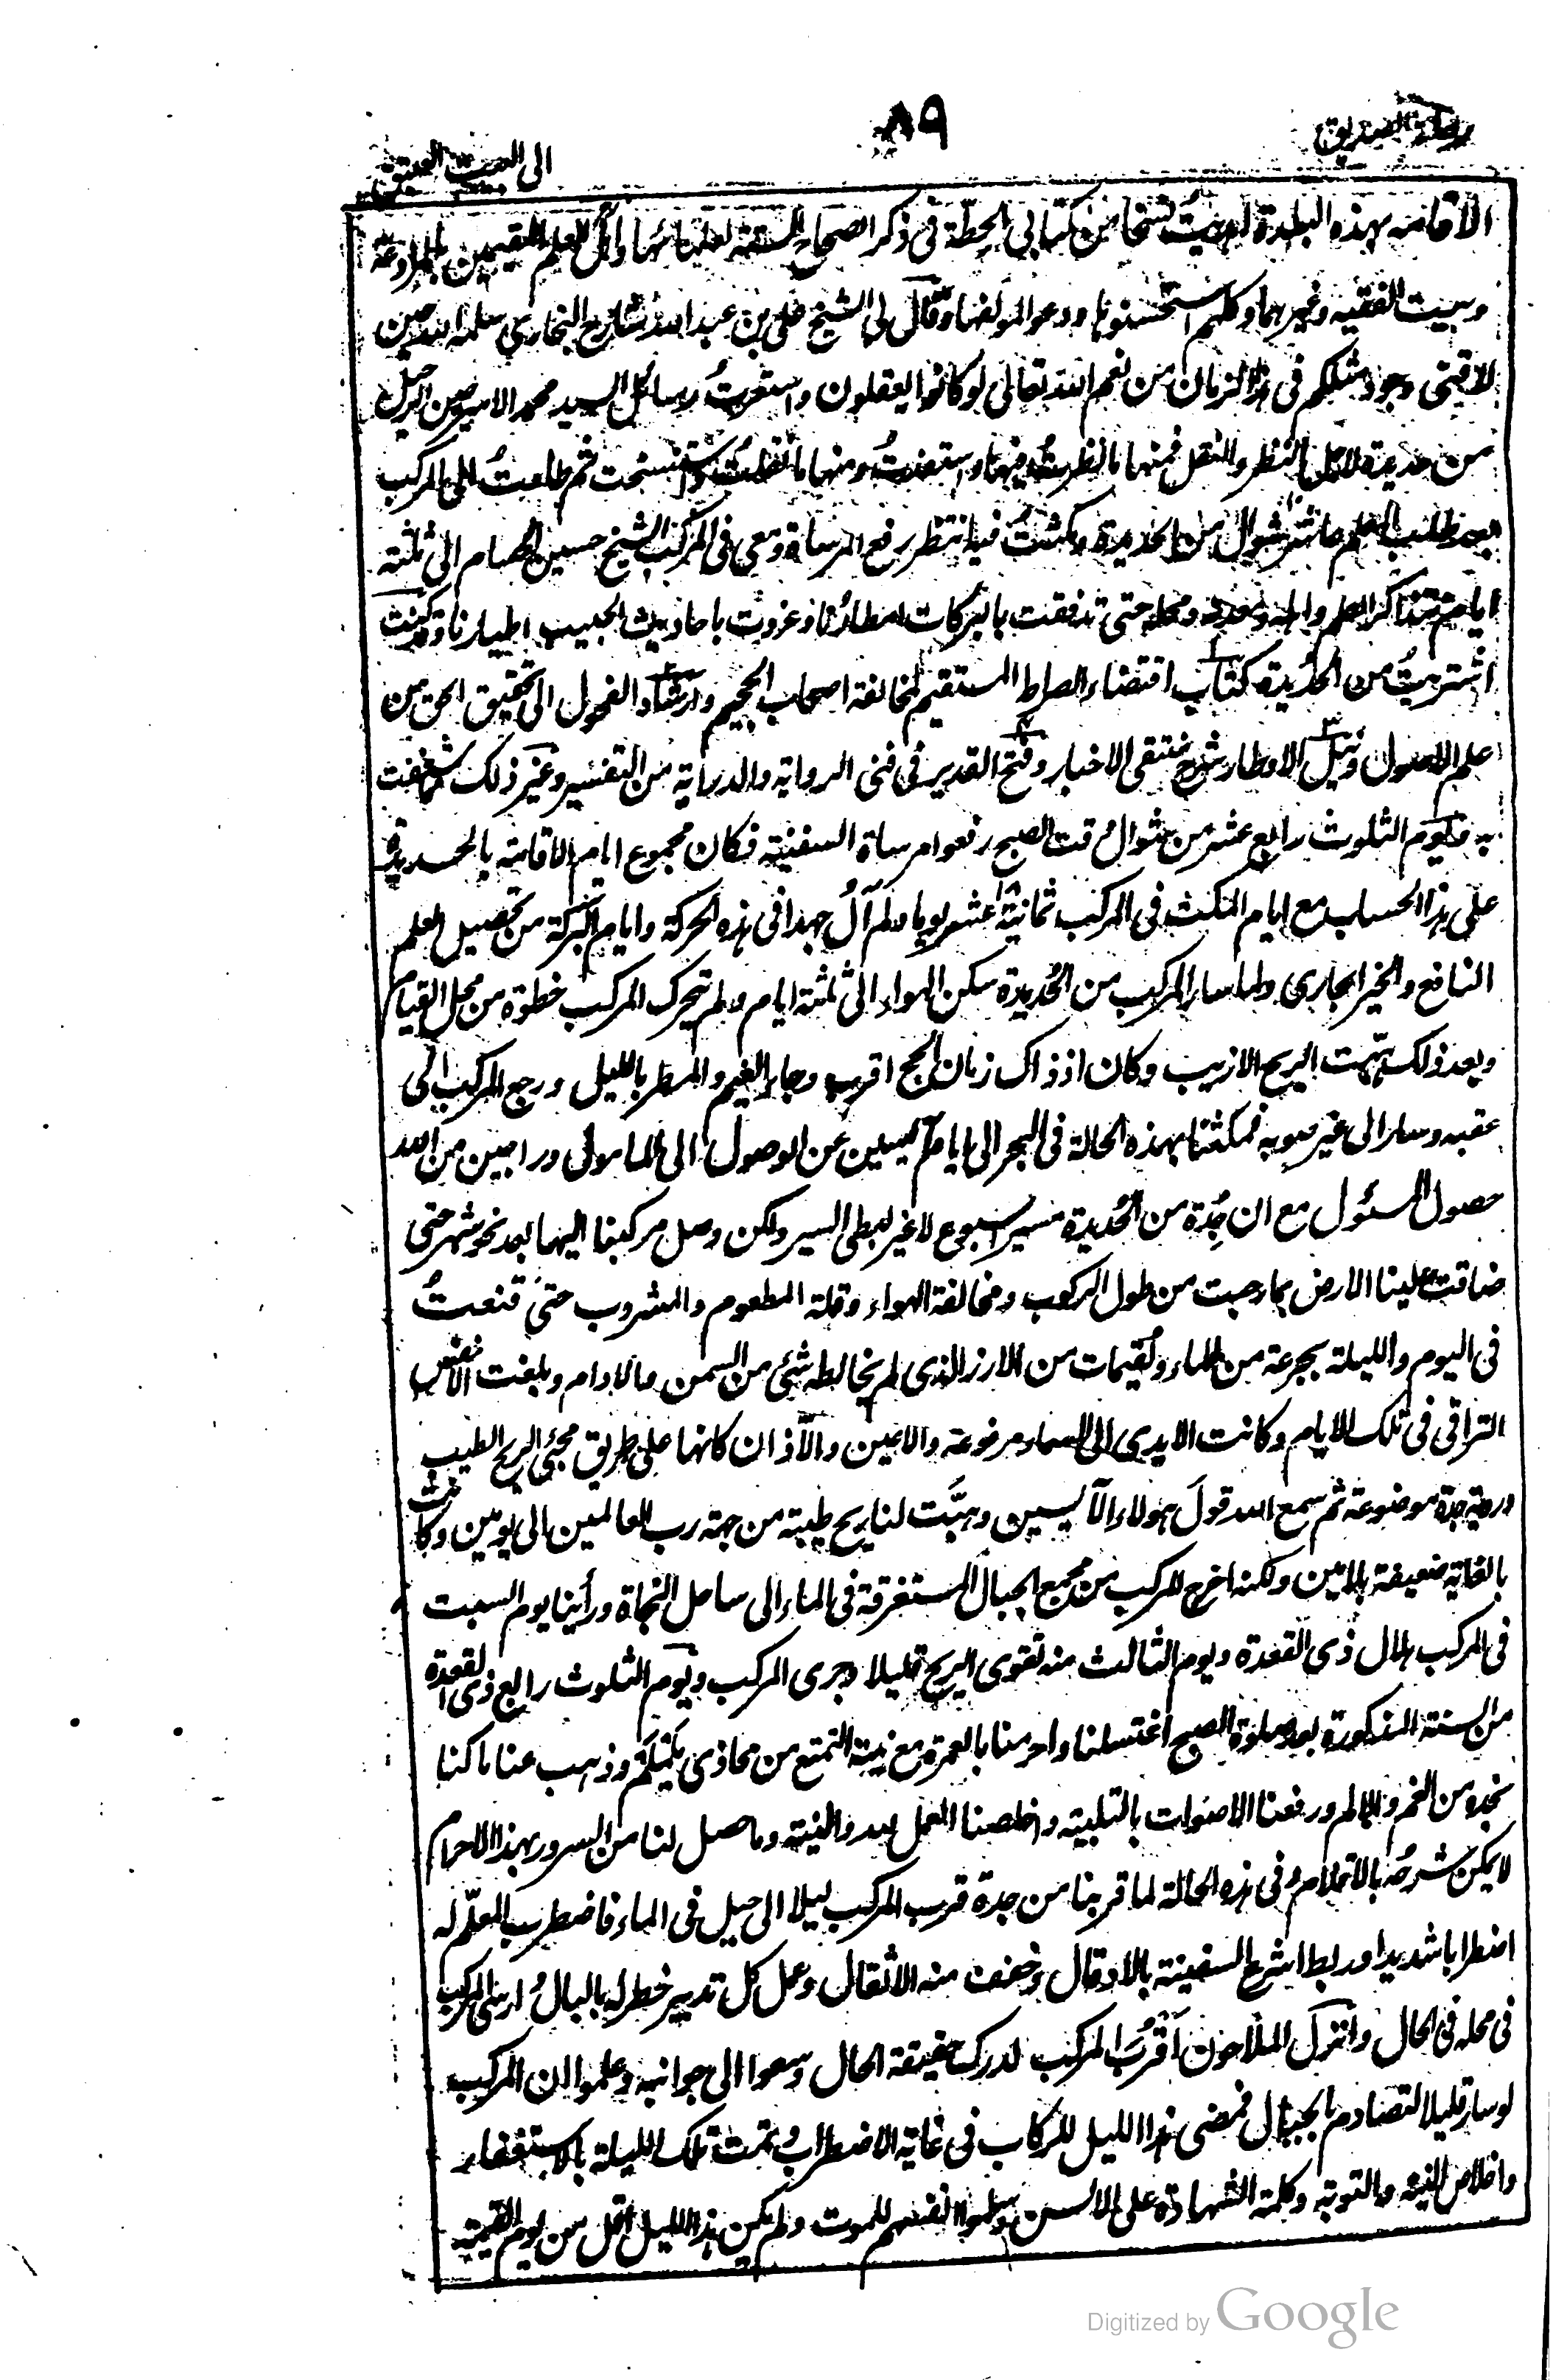 رحلة الصديق
٨٩
الى البيت العتيق
الاقامه بهذه البلدة اهديت نسخا من كتابي الحطة فى ذكر الصحاح الستة لعلمائها واهل العلم المقيمين بالمراوعة
وبيت الفقيه وغيرهما وكلهم استحسنوها ودعوا لمؤلفها وقال لى الشيخ على بن عبد الله شارح البخاري سلمه الله حين
لاقيتى وجود مثلكم فى هذا الزمان من نعم الله تعالى لو كانوا يعقلون واستعرت رسائل السيد محمد الامير من
من حديدة لاجل النظر والنقل فمنها ما نظرت فيها واستفدت ومنها ما نقلت واستنسخت ثم طلعت الى المركب
بعد طلب المعلم عاشر شوال من الحديدة ومكثت فيه انتظر رفع المرساة ومعى فى المركب الشيخ حسين الى ثلثة
ايام نتذاكر العلم واهله ومحله حتى تدفقت بالبركات امطارنا وغردت باحاديث الحبيب اطيارنا وكنت
اشتريت من الحديدة كتاب اقتضاء الصراط المستقيم لمخالفة اصحاب الجحيم وارشاد الفحول الى تحقيق الحق من
علم الاصول ونيل الاوطار شرح منتقى الاخبار وفتح القدير فى فنى الرواية والدراية من التفسير وغير ذلك شغفت
به ويوم الثلوث رابع عشر من شوال وقت الصبح رفعوا مرساة السفينة فكان مجموع ايام الاقامة بالحديدة
على هذا الحساب مع ايام المكث فى المركب ثمانية عشر يوما ولم آلُ جهدا فى هذه الحركة وايام البركة من تحصيل العلم
النافع والخير الجارى ولما سار المركب من الحُديدة سكن الهواء الى ثلثة ايام ولم تحرك المركب خطوة من محل القيام
وبعد ذلك هبت الريح الازيب وكان اذ ذاك زمان الحج اقرب وجاء الغيم والمطر بالليل ورجع المركب الى
عقبه وسار الى غير صوبه فمكثنا بهذه الحالة فى البحر الى ايام آيسين عن الوصول الى المامول وراجين من الله
حصول المسئول مع ان جدة من الحُديدة مسير اسبوع لا غير لبطى السير ولكن وصل مركبنا اليها بعد نحو شهر حتى
ضاقت علينا الارض بما رحبت من طول الركوب ومخالفة الهواء وقلة المطعوم والمشروب حتى قنعتُ
فى اليوم والليلة بجرعة من الماء ولقيمات من الارز الذى لم يخالطه شئ من السمن والادام وبلغت الانفس
التراقى فى تلك الايام وكانت الايدى الى السماء مرفوعة والاعين والآذان كانها على طريق مجئ الريح الطيب
ورؤية جدة موضوعة ثم سمع الله قول هولاء الآيسين وهبّت لنا ريح طيبة من جهة رب العالمين الى يومين وكانت
بالغاية ضعيفة بالامين ولكنه اخرج المركب من مجمع الجبال المستغرقة فى الماء الى ساحل النجاة ورأينا يوم السبت
فى المركب هلال ذى القعدة ويوم الثالث منه تقوى الريح قليلا وجرى المركب ويوم الثلوث رابع ذى القعدة
من السنة المذكورة بعد صلوة الصبح اغتسلنا واحرمنا بالعمرة مع نية التمتع من محاذى يلملم وذهب عنا ما كنا
نجده من الغم والالم ورفعنا الاصوات بالتلبية واخلصنا العمل لله والنية وما حصل لنا من السرور بهذا الاحرام
لا يمكن شرحه بالاقلام وفى هذه الحالة لما قربنا من جدة قرب المركب ليلا الى جبل فى الماء فاضطرب المعلّم له
اضطرابا شديدا وربط اشرع السفينة بالادقال وخفف منه الاثقال وعمل كل تدبير خطر له بالبال ارسى المركب
فى محله فى الحال وانزل الملاحون اَقرُبَ المركب لدرك حقيقة الحال وسعوا الى جوانبه وعلموا ان المركب
لو سار قليلا لتصادم بالجبال فمضى هذا الليل للركاب فى غاية الاضطراب وتمت تلك الليلة بالاستغفار
واخلاص النية والتوبة وكلمة الشهادة على الالسن وسلموا انفسهم للموت ولم يكن هذا الليل اقل من يوم القيمة
Digitized by Google